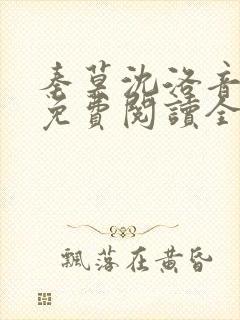 秦暮沈洛音
免費閱讀全
飄落在黃昏